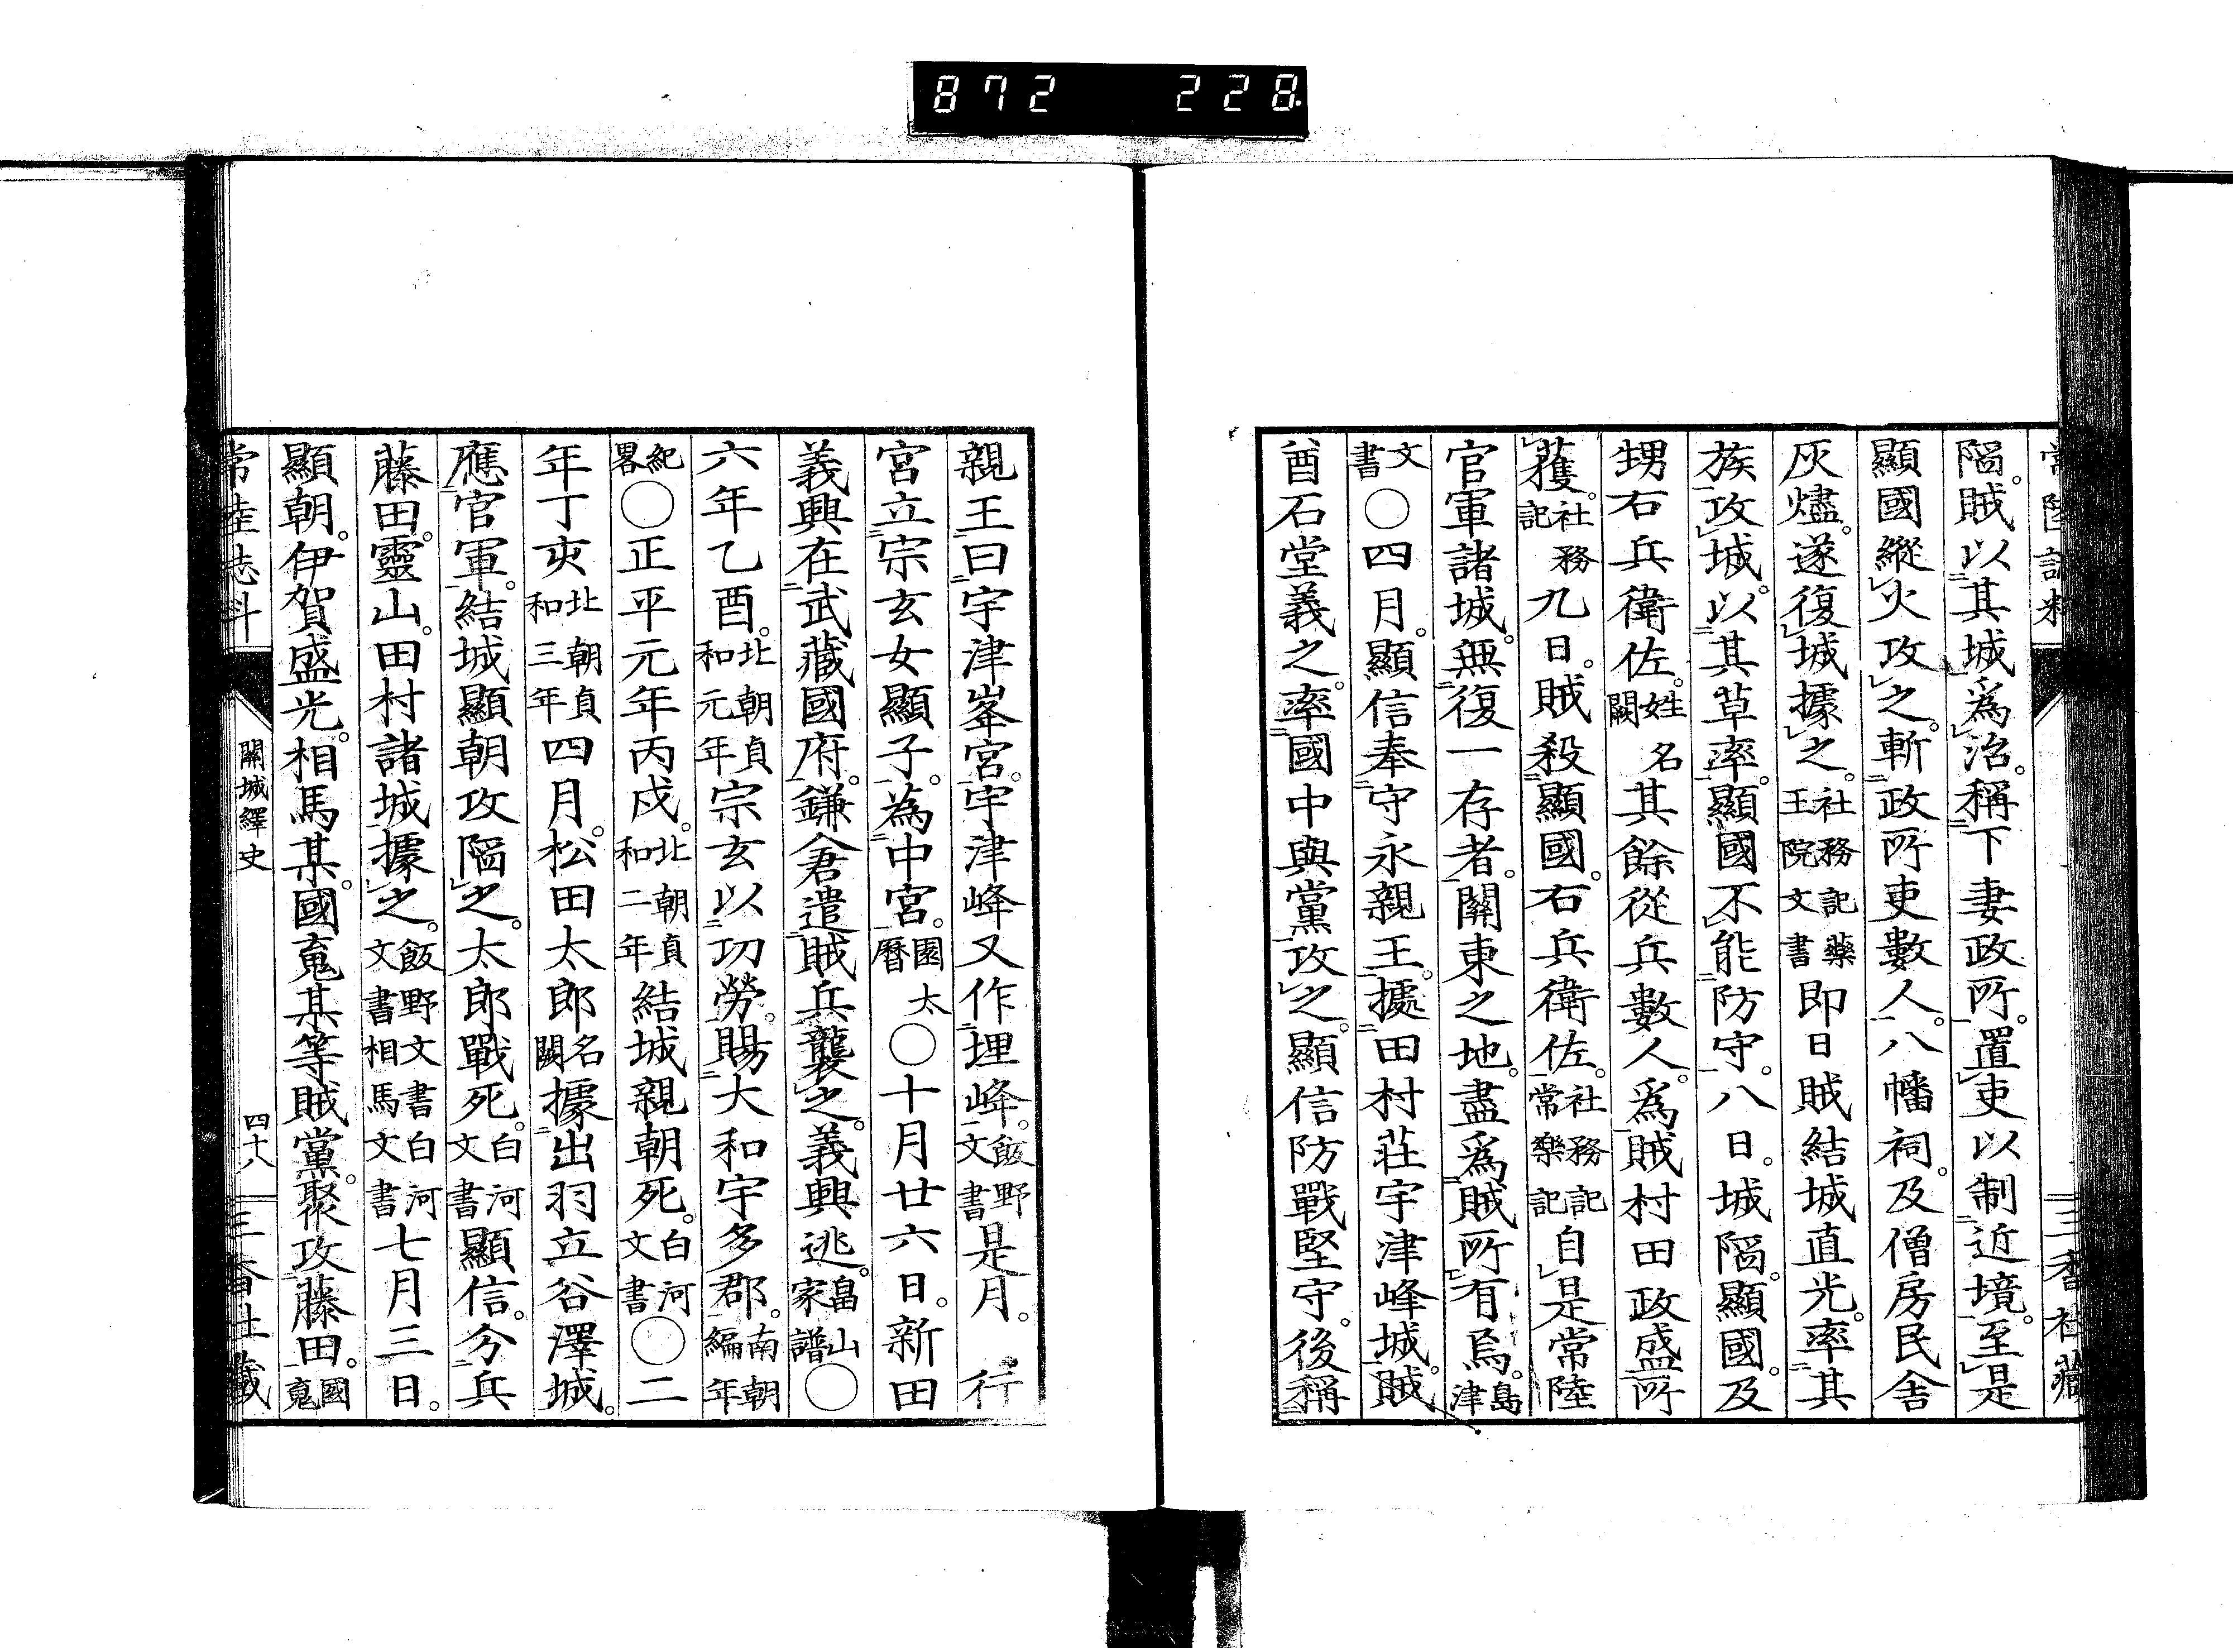 872 228
陷。賊以其城爲治。稱下妻政所。置吏以制近境。至是
顯國縱火攻之。斬政所吏數人。八幡祠。及僧房民舎
灰燼。遂復城據之。社務記藥王院文書即日賊結城直光。率其
族攻城。以其草率。顯國不能防守。八日。城陷。顯國。及
甥右兵衛佐。姓名闕其餘從兵數人。爲賊村田政盛所
獲。社務記九日。賊殺顯國。右兵衛佐。社務記常樂記自是常陸
官軍諸城。無復一存者。關東之地。盡爲賊所有焉。島津
文書○四月。顯信奉守永親王。據田村莊宇津峰城。賊
酋石堂義之。率國中與黨攻之。顯信防戰堅守。後稱
親王曰宇津峯宮。宇津峰又作埋峰。飯野文書是月。行
宮立宗玄女顯子。為中宮。園太曆○十月廿六日。新田
義興在武藏國府。鎌倉遣賊兵襲之。義興逃。畠山家譜○
六年乙酉。北朝貞和元年宗玄以功勞。賜大和宇多郡。南朝編年
紀畧○正平元年丙戌。北朝貞和二年結城親朝死。白河文書○二
年丁亥北朝貞和三年四月。松田太郎名闕據出羽立谷澤城。
應官軍。結城顯朝攻陷之。太郎戰死。白河文書顯信。分兵
藤田。靈山。田村諸城據之。飯野文書白河文書相馬文書七月三日。
顯朝。伊賀盛光。相馬某。國䰟某等賊黨。聚攻藤田。國䰟
關城繹史
四十八